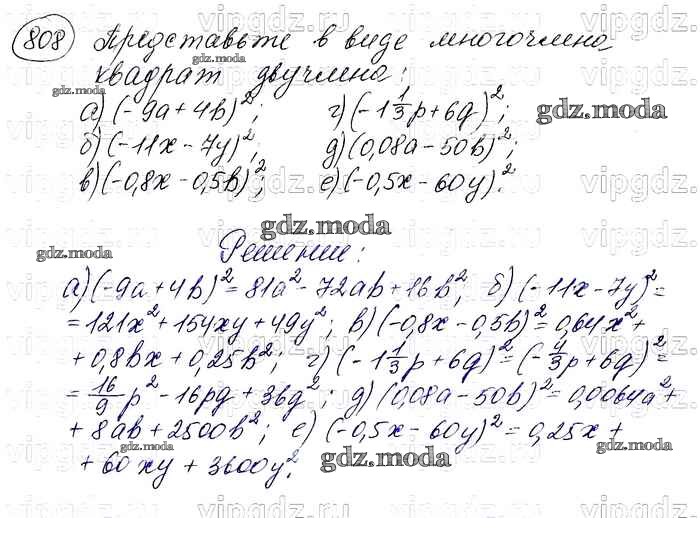 808 Представьте в виде многочлена
квадрат двучлена:
а) (-9a+4b)²; г) (-1 1/3 p+6q)²;
б) (-11x-7y)²; д) (0,08a-50b)²;
в) (-0,8x-0,5b)²; е) (-0,5x-60y)².
Решение:
а) (-9a+4b)²=81a²-72ab+16b²; б) (-11x-7y)²=
=121x²+154xy+49y²; в) (-0,8x-0,5b)²=0,64x²+
+0,8bx+0,25b²; г) (-1 1/3 p+6q)²=(-4/3 p+6q)²=
=16/9 p²-16pq+36q²; д) (0,08a-50b)²=0,0064a²+
+8ab+2500b²; е) (-0,5x-60y)²=0,25x+
+60xy+3600y².
gdz.moda
gdz.moda
gdz.moda
gdz.moda
gdz.moda
vipgdz.ru